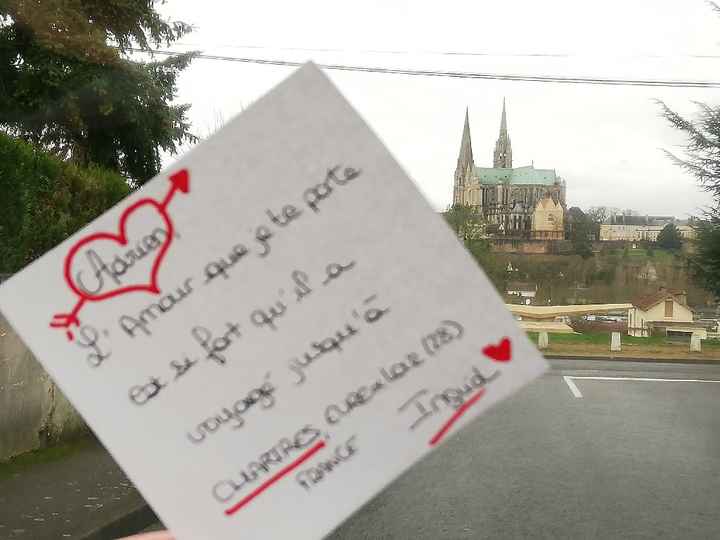 Adrien,
L'Amour que je te porte
est si fort qu'il a
voyagé jusqu'à
CHARTRES, EURE & LOIR (28)
FRANCE
Ingrid